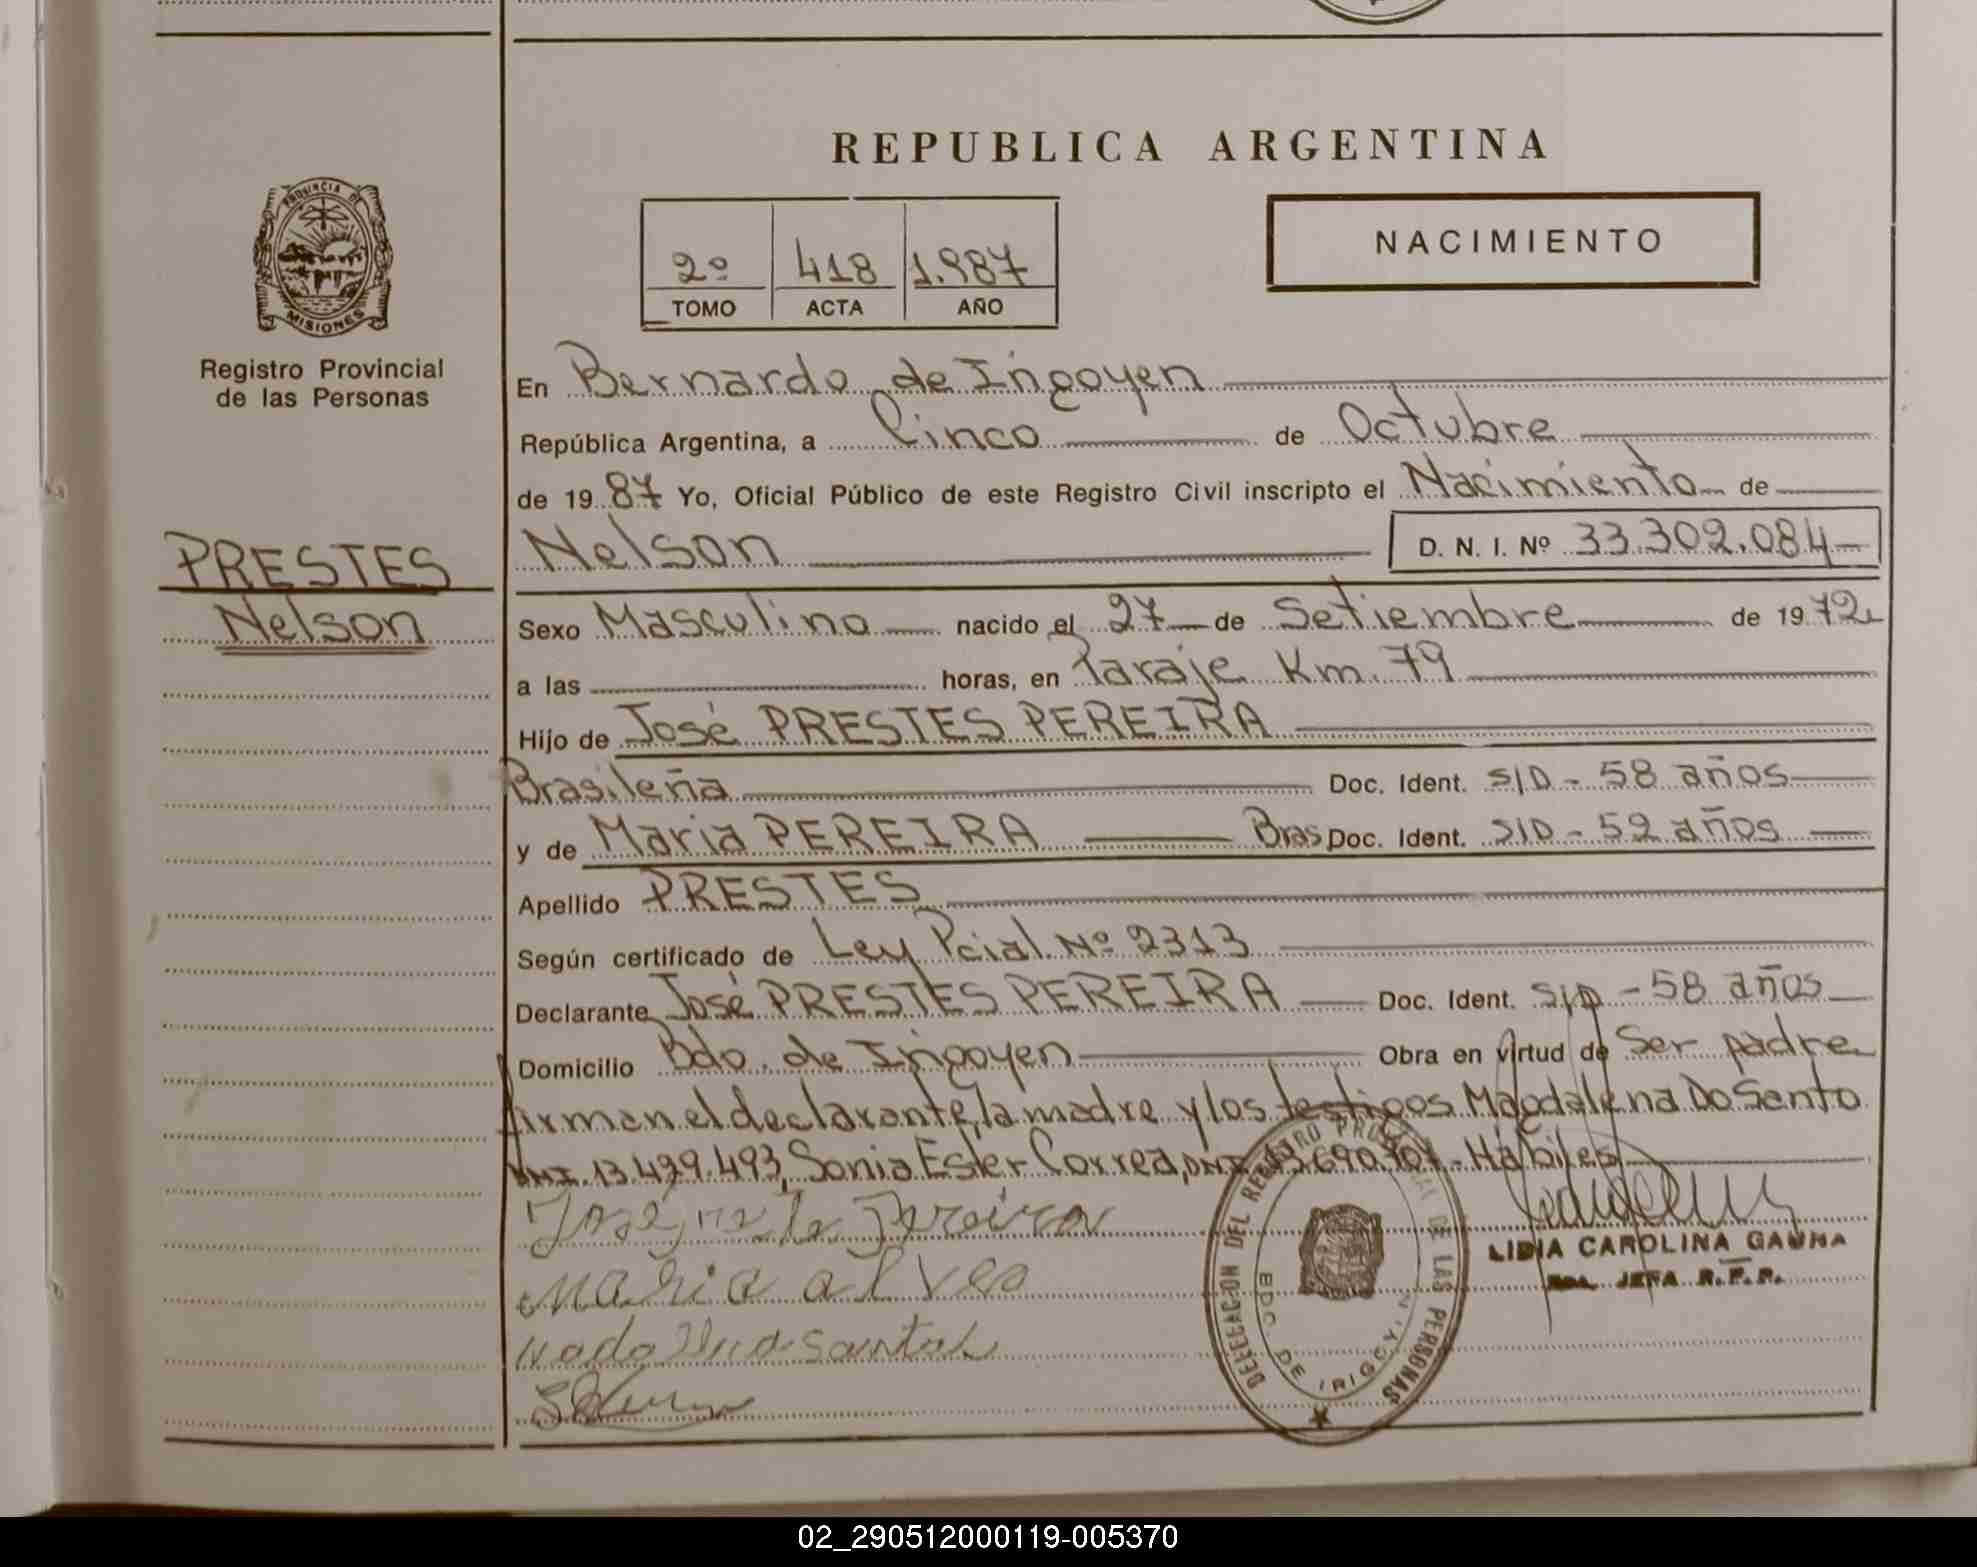 REPUBLICA ARGENTINA
PROVINCIA DE
MISIONES
Registro Provincial
de las Personas
NACIMIENTO
2º 418 1.987
TOMO ACTA AÑO
En Bernardo de Irigoyen
República Argentina, a Cinco de Octubre
de 19 87 Yo, Oficial Público de este Registro Civil inscripto el Nacimiento de
PRESTES
Nelson
Nelson D. N. I. Nº 33.302.084
Sexo Masculino nacido el 27 de Setiembre de 19 72
a las horas, en Paraje Km. 79
Hijo de José PRESTES PEREIRA
Brasileña Doc. Ident. S/D - 58 años
y de Maria PEREIRA Bras Doc. Ident. S/D - 52 años
Apellido PRESTES
Según certificado de Ley Pcial. Nº 2313
Declarante José PRESTES PEREIRA Doc. Ident. S/D - 58 años
Domicilio Bdo. de Irigoyen Obra en virtud de Ser padre
firman el declarante, la madre y los testigos Magdalena Do Santo
DNI. 13.429.493, Sonia Ester Correa, DNI. - Hábiles
José Pereira
Maria alves
LIDIA CAROLINA GAUNA
JEFA R.P.P.
DELEGACION DEL REGISTRO PROVINCIAL DE LAS PERSONAS
BDO DE IRIGOYEN
02_290512000119-005370